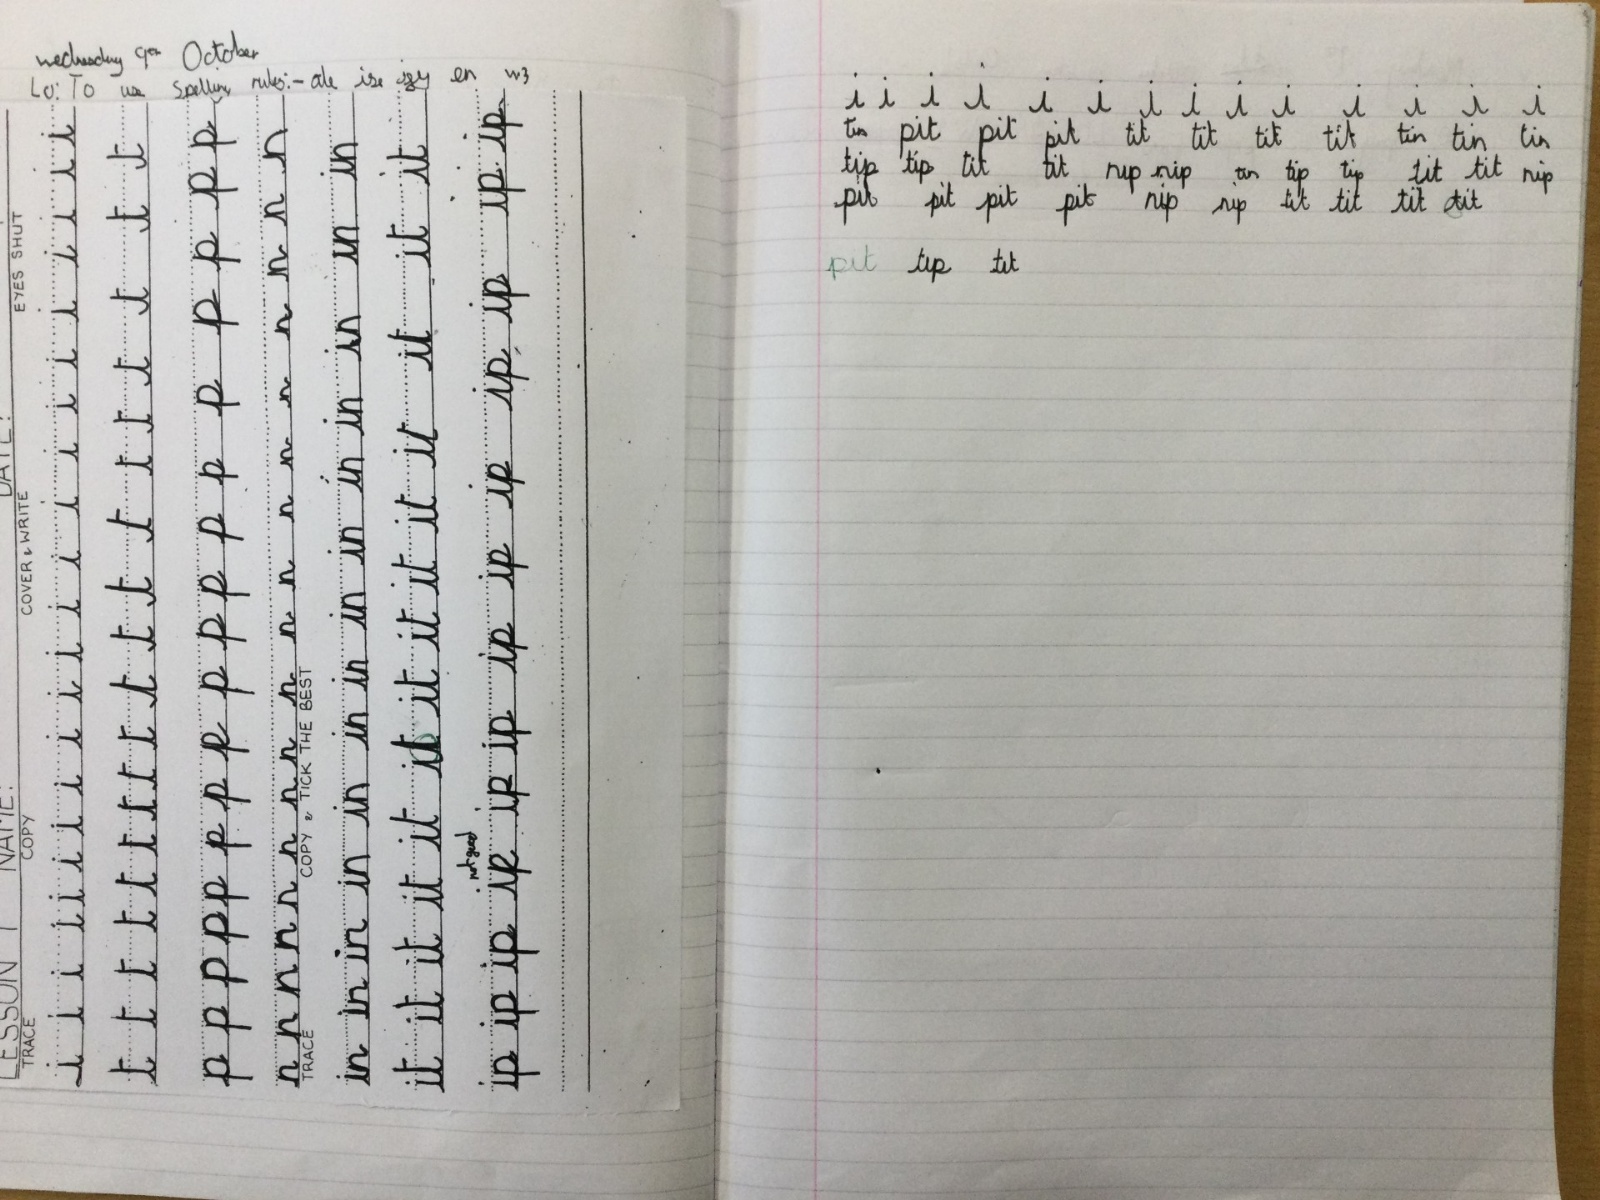 Wednesday 9th October
Lo: To use Spelling rules:- ate ise ify en w3
LESSON 1 NAME: DATE:
TRACE COPY COVER & WRITE EYES SHUT
i i i i i i i i i i i i i i i i i i
t t t t t t t t t t t t t t t
p p p p p p p p p p p p p p p p p
n n n n n n n n n n n n n n n n n
TRACE COPY & TICK THE BEST
in in in in in in in in in in in in in
it it it it it it it it it it it it it
not good
ip ip ip ip ip ip ip ip ip ip ip ip ip
i i i i i i i i i i i i i i
tin pit pit pit tit tit tit tit tin tin tin
tip tip tit tit nip nip tin tip tip tit tit nip
pit pit pit pit nip nip tit tit tit tit
pit tip tit